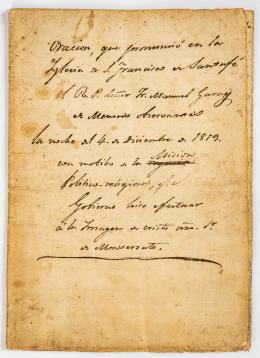 Oracion, que pronunció en la
Iglesia de S. Francisco de Santafé
el R. P. Lector Fr. Manuel Garay
de Menores observantes
la noche del 4. de diciembre de 1813.
con motibo de la Mision
Politico-religiosa, qe. el
Gobierno hizo efectuar
á la Imagen de cristo nro. Sr.
de Monserrate.